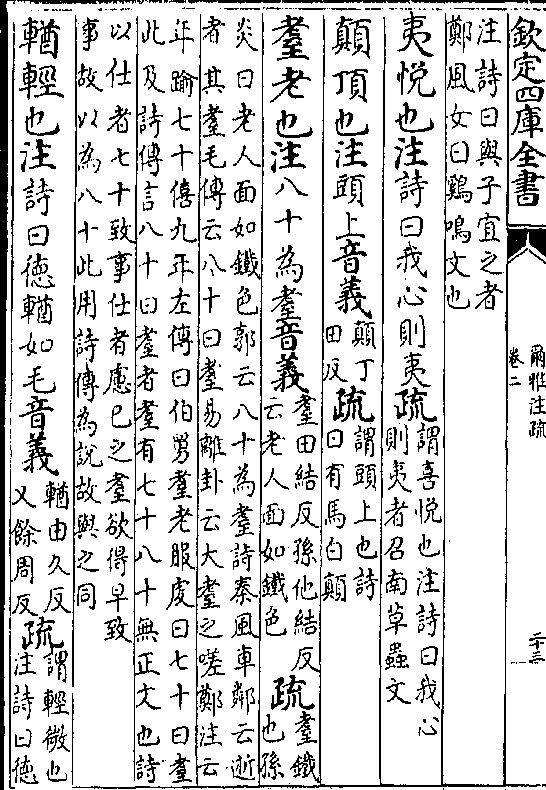 欽定四庫全書
爾雅注疏
卷二
二十三
注詩曰與子宜之者
鄭風女曰鷄鳴文也
夷悦也注詩曰我心則夷疏謂喜悦也注詩曰我心
則夷者召南草蟲文
顛頂也注頭上音義顛丁
田反疏謂頭上也詩
曰有馬白顛
耋老也注八十為耋音義耋田結反孫他結反
云老人面如鐵色疏耋鐵
也孫
炎曰老人面如鐵色郭云八十為耋詩秦風車鄰云逝
者其耋毛傳云八十曰耋易離卦云大耋之嗟鄭注云
年踰七十僖九年左傳曰伯舅耋老服虔曰七十曰耋
此及詩傳言八十曰耋者耋有七十八十無正文也詩
以仕者七十致事仕者慮已之耋欲得早致
事故以為八十此用詩傳為說故與之同
輶輕也注詩曰徳輶如毛音義輶由久反
又餘周反疏謂輕微也
注詩曰徳